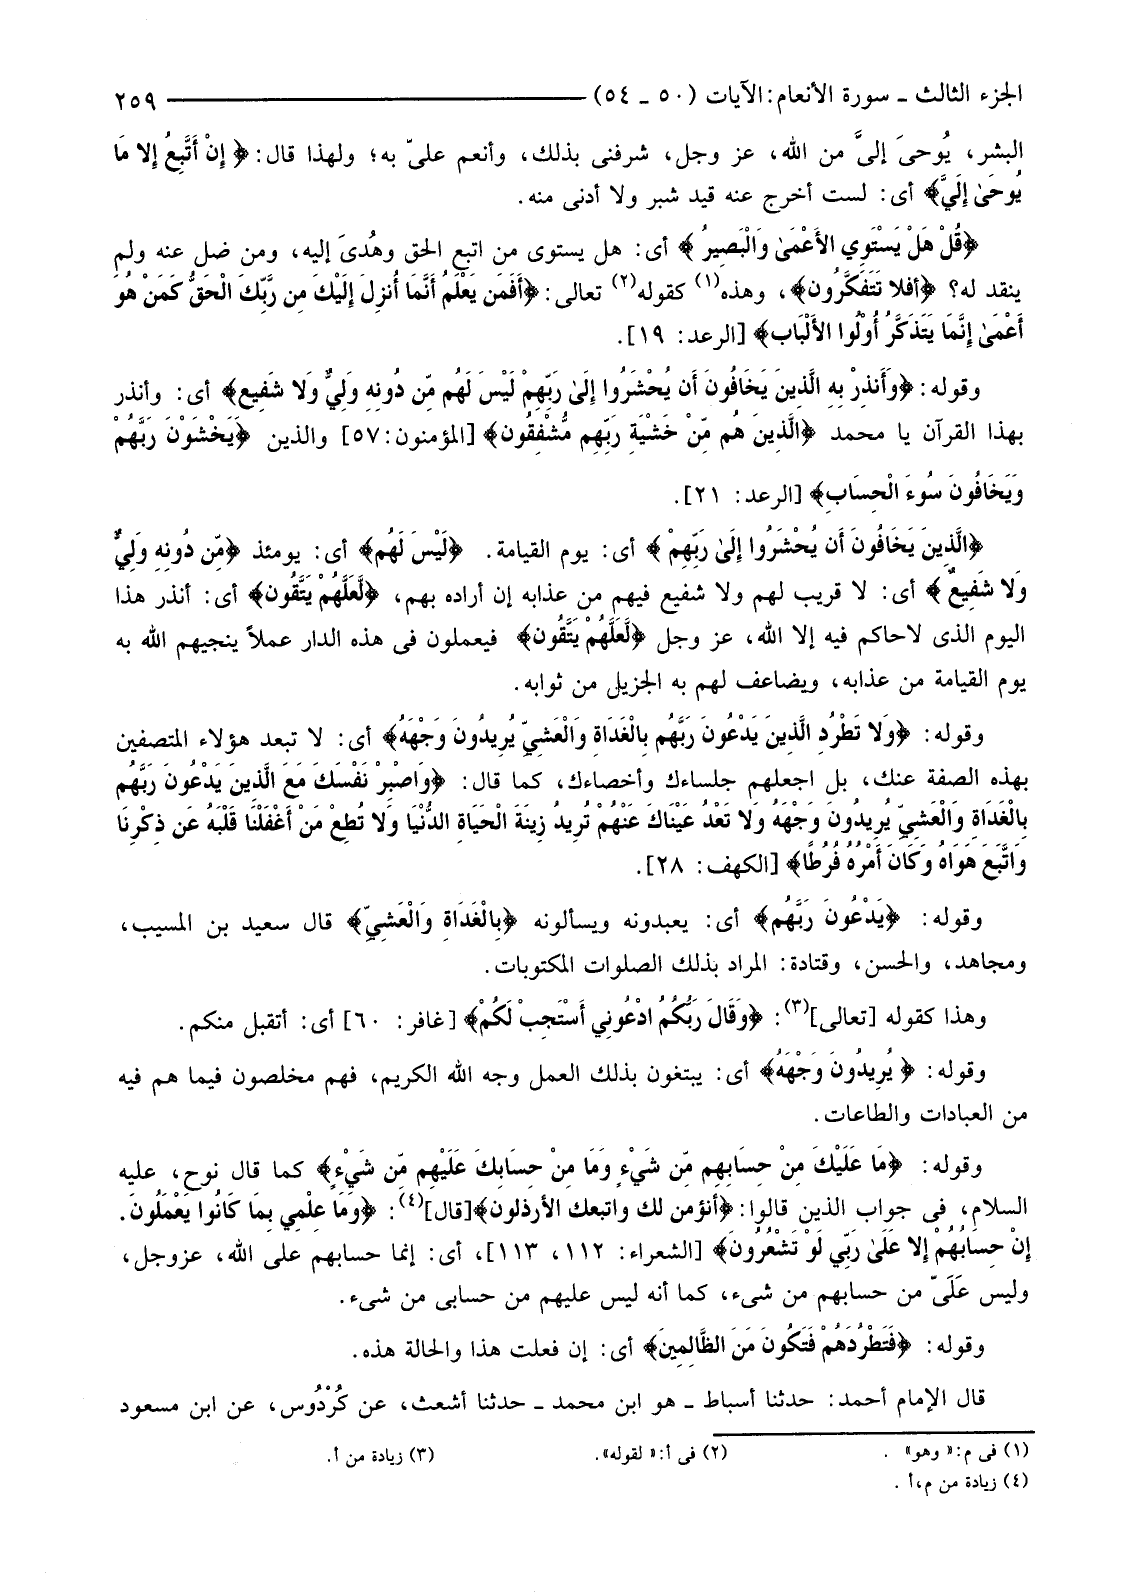 الجزء الثالث ـ سورة الأنعام: الآيات (٥٠ ـ ٥٤) ٢٥٩
البشر، يُوحىَ إلىَّ من الله، عز وجل، شرفنى بذلك، وأنعم علىّ به؛ ولهذا قال: ﴿ إِنْ أَتَّبِعُ إِلا مَا
يُوحَىٰ إِلَيَّ﴾ أى: لست أخرج عنه قيد شبر ولا أدنى منه.
﴿قُلْ هَلْ يَسْتَوِي الأَعْمَىٰ وَالْبَصِيرُ ﴾ أى: هل يستوى من اتبع الحق وهُدىَ إليه، ومن ضل عنه ولم
ينقد له؟ ﴿أَفلا تَتَفَكَّرُون﴾، وهذه(١) كقوله(٢) تعالى: ﴿أَفَمَن يَعْلَمُ أَنَّمَا أُنزِلَ إِلَيْكَ مِن رَّبِّكَ الْحَقُّ كَمَنْ هُوَ
أَعْمَىٰ إِنَّمَا يَتَذَكَّرُ أُوْلُوا الأَلْبَاب﴾ [الرعد: ١٩].
وقوله: ﴿وَأَنذِرْ بِهِ الَّذِينَ يَخَافُونَ أَن يُحْشَرُوا إِلَىٰ رَبِّهِمْ لَيْسَ لَهُم مِّن دُونِهِ وَلِيٌّ وَلا شَفِيع﴾ أى: وأنذر
بهذا القرآن يا محمد ﴿الَّذِينَ هُم مِّنْ خَشْيَةِ رَبِّهِم مُّشْفِقُون﴾ [المؤمنون:٥٧] والذين ﴿يَخْشَوْنَ رَبَّهُمْ
وَيَخَافُونَ سُوءَ الْحِسَاب﴾ [الرعد: ٢١].
﴿الَّذِينَ يَخَافُونَ أَن يُحْشَرُوا إِلَىٰ رَبِّهِمْ ﴾ أى: يوم القيامة. ﴿لَيْسَ لَهُم﴾ أى: يومئذ ﴿مِّن دُونِهِ وَلِيٌّ
وَلا شَفِيعٌ﴾ أى: لا قريب لهم ولا شفيع فيهم من عذابه إن أراده بهم، ﴿لَّعَلَّهُمْ يَتَّقُون﴾ أى: أنذر هذا
اليوم الذى لاحاكم فيه إلا الله، عز وجل ﴿لَّعَلَّهُمْ يَتَّقُون﴾ فيعملون فى هذه الدار عملاً ينجيهم الله به
يوم القيامة من عذابه، ويضاعف لهم به الجزيل من ثوابه.
وقوله: ﴿وَلا تَطْرُدِ الَّذِينَ يَدْعُونَ رَبَّهُم بِالْغَدَاةِ وَالْعَشِيِّ يُرِيدُونَ وَجْهَهُ﴾ أى: لا تبعد هؤلاء المتصفين
بهذه الصفة عنك، بل اجعلهم جلساءك وأخصاءك، كما قال: ﴿وَاصْبِرْ نَفْسَكَ مَعَ الَّذِينَ يَدْعُونَ رَبَّهُم
بِالْغَدَاةِ وَالْعَشِيِّ يُرِيدُونَ وَجْهَهُ وَلا تَعْدُ عَيْنَاكَ عَنْهُمْ تُرِيدُ زِينَةَ الْحَيَاةِ الدُّنْيَا وَلا تُطِعْ مَنْ أَغْفَلْنَا قَلْبَهُ عَن ذِكْرِنَا
وَاتَّبَعَ هَوَاهُ وَكَانَ أَمْرُهُ فُرُطًا﴾ [الكهف: ٢٨].
وقوله: ﴿يَدْعُونَ رَبَّهُم﴾ أى: يعبدونه ويسألونه ﴿بِالْغَدَاةِ وَالْعَشِيّ﴾ قال سعيد بن المسيب،
ومجاهد، والحسن، وقتادة: المراد بذلك الصلوات المكتوبات.
وهذا كقوله [تعالى](٣): ﴿وَقَالَ رَبُّكُمُ ادْعُونِي أَسْتَجِبْ لَكُمْ﴾ [غافر: ٦٠] أى: أتقبل منكم.
وقوله: ﴿ يُرِيدُونَ وَجْهَهُ﴾ أى: يبتغون بذلك العمل وجه الله الكريم، فهم مخلصون فيما هم فيه
من العبادات والطاعات.
وقوله: ﴿مَا عَلَيْكَ مِنْ حِسَابِهِم مِّن شَيْءٍ وَمَا مِنْ حِسَابِكَ عَلَيْهِم مِّن شَيْءٍ﴾ كما قال نوح، عليه
السلام، فى جواب الذين قالوا: ﴿أَنؤمن لك واتبعك الأرذلون﴾[قال](٤): ﴿وَمَا عِلْمِي بِمَا كَانُوا يَعْمَلُونَ.
إِنْ حِسَابُهُمْ إِلا عَلَىٰ رَبِّي لَوْ تَشْعُرُونَ﴾ [الشعراء: ١١٢، ١١٣]، أى: إنما حسابهم على الله، عزوجل،
وليس عَلَىّ من حسابهم من شىء، كما أنه ليس عليهم من حسابى من شىء.
وقوله: ﴿فَتَطْرُدَهُمْ فَتَكُونَ مِنَ الظَّالِمِينَ﴾ أى: إن فعلت هذا والحالة هذه.
قال الإمام أحمد: حدثنا أسباط ـ هو ابن محمد ـ حدثنا أشعث، عن كُرْدُوس، عن ابن مسعود
(١) فى م: « وهو» . (٢) فى أ: « لقوله». (٣) زيادة من أ.
(٤) زيادة من م،أ .